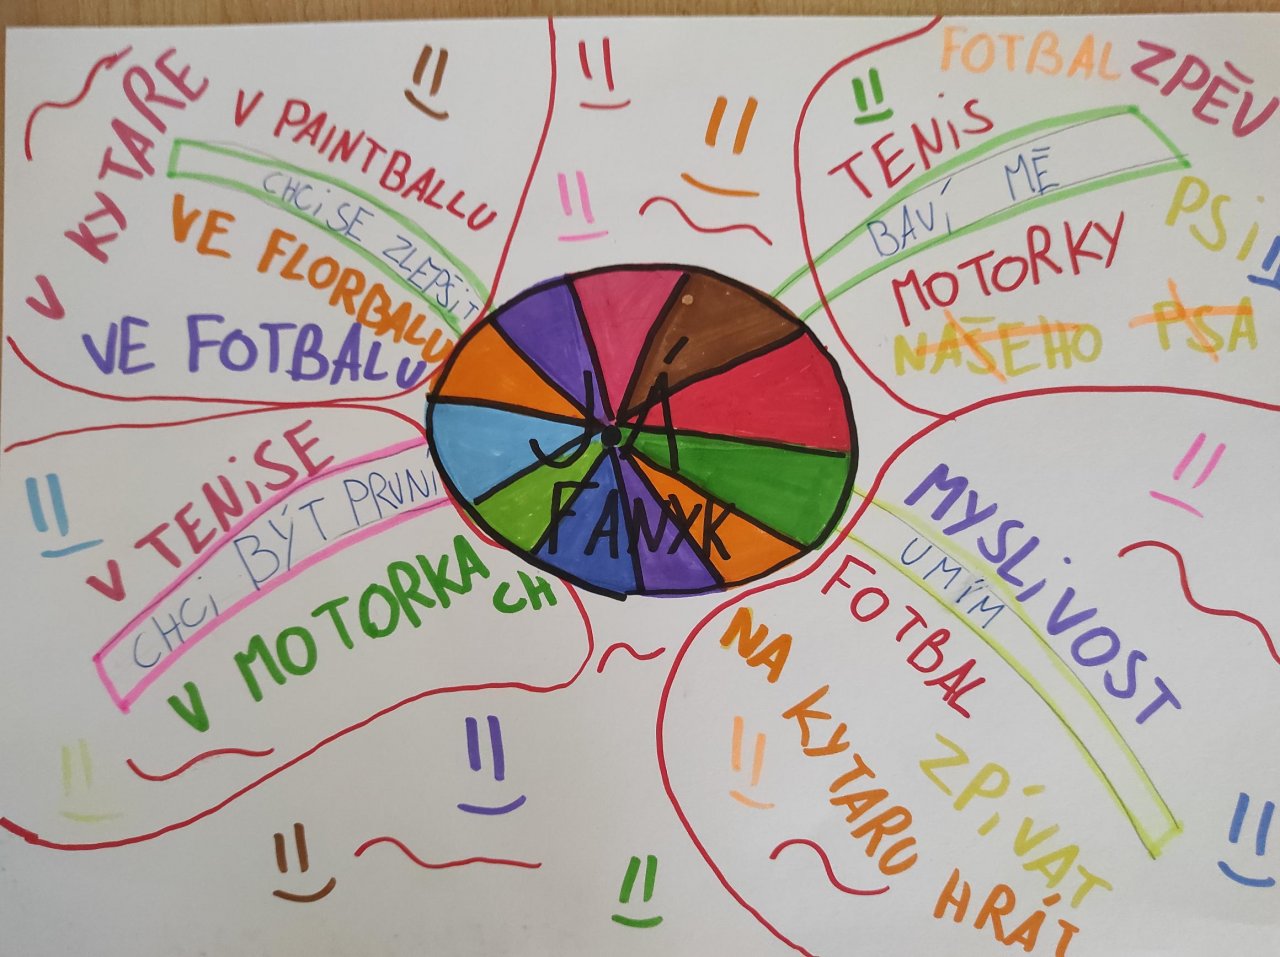 V KYTAŘE
V PAINTBALLU
CHCi SE ZLEPŠiT
VE FLORBALU
VE FOTBALU
FOTBAL
ZPĚV
TENiS
BAVÍ MĚ
PSi
MOTORKY
NAŠEHO PSA
JÁ
FANYK
V TENiSE
CHCi BÝT PRVNÍ
V MOTORKA
CH
MYSLiVOST
UMÍM
FOTBAL
ZPÍVAT
NA KYTARU HRÁT